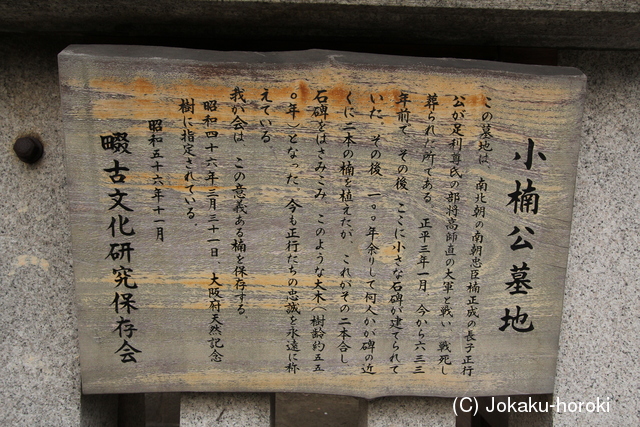 小楠公墓地
この墓地は、南北朝の南朝忠臣楠正成の長子正行
公が足利尊氏の部将高師直の大軍と戦い、戦死し
葬られた所である。正平三年一月、今から六三三
年前で、その後、ここに小さな石碑が建てられて
いた。その後、一〇〇年余りして何人かが碑の近
くに二本の楠を植えたが、これがその二本合し
石碑をはさみこみ、このような大木（樹齢約五五
〇年）となった。今も正行たちの忠誠を永遠に称
えている。
我が会は、この意義ある楠を保存する。
昭和四十六年三月三十一日 大阪府天然記念
樹に指定されている。
昭和五十六年十一月
畷古文化研究保存会
(C) Jokaku-horoki